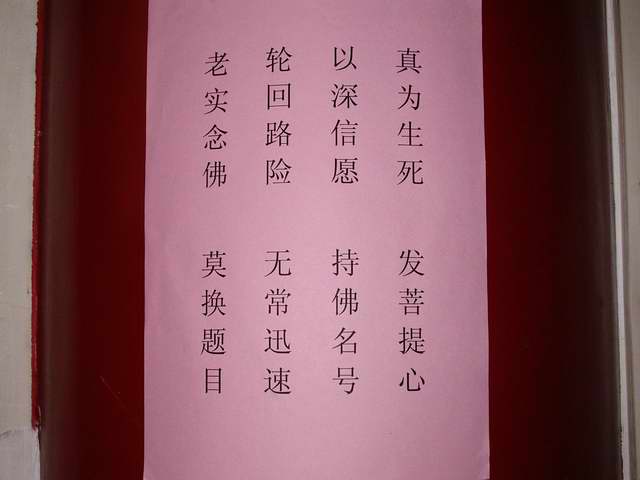 真为生死 发菩提心
以深信愿 持佛名号
轮回路险 无常迅速
老实念佛 莫换题目